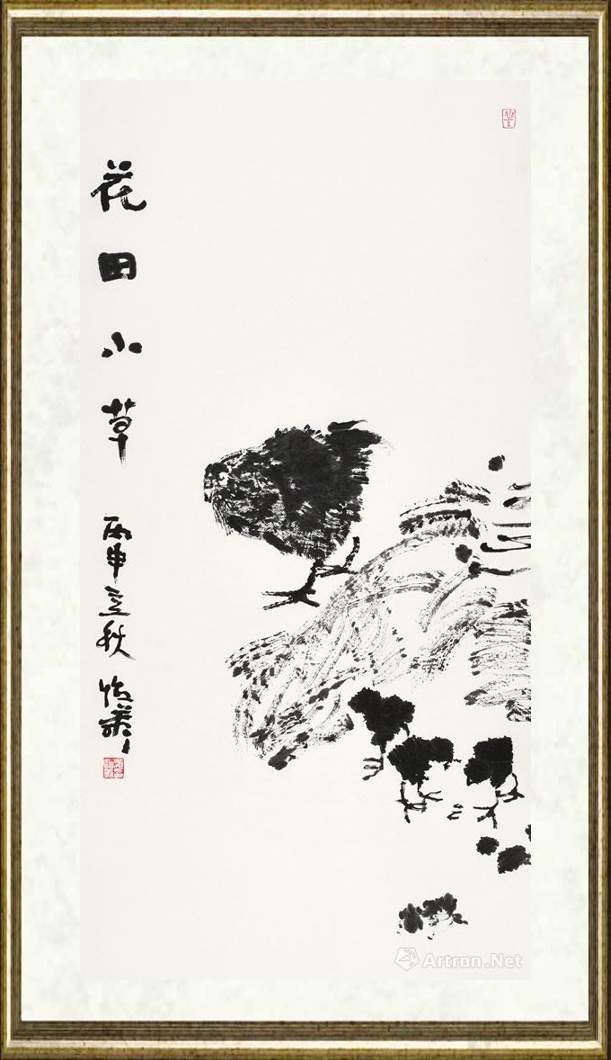 花田小草 丙申立秋
Artron.Net